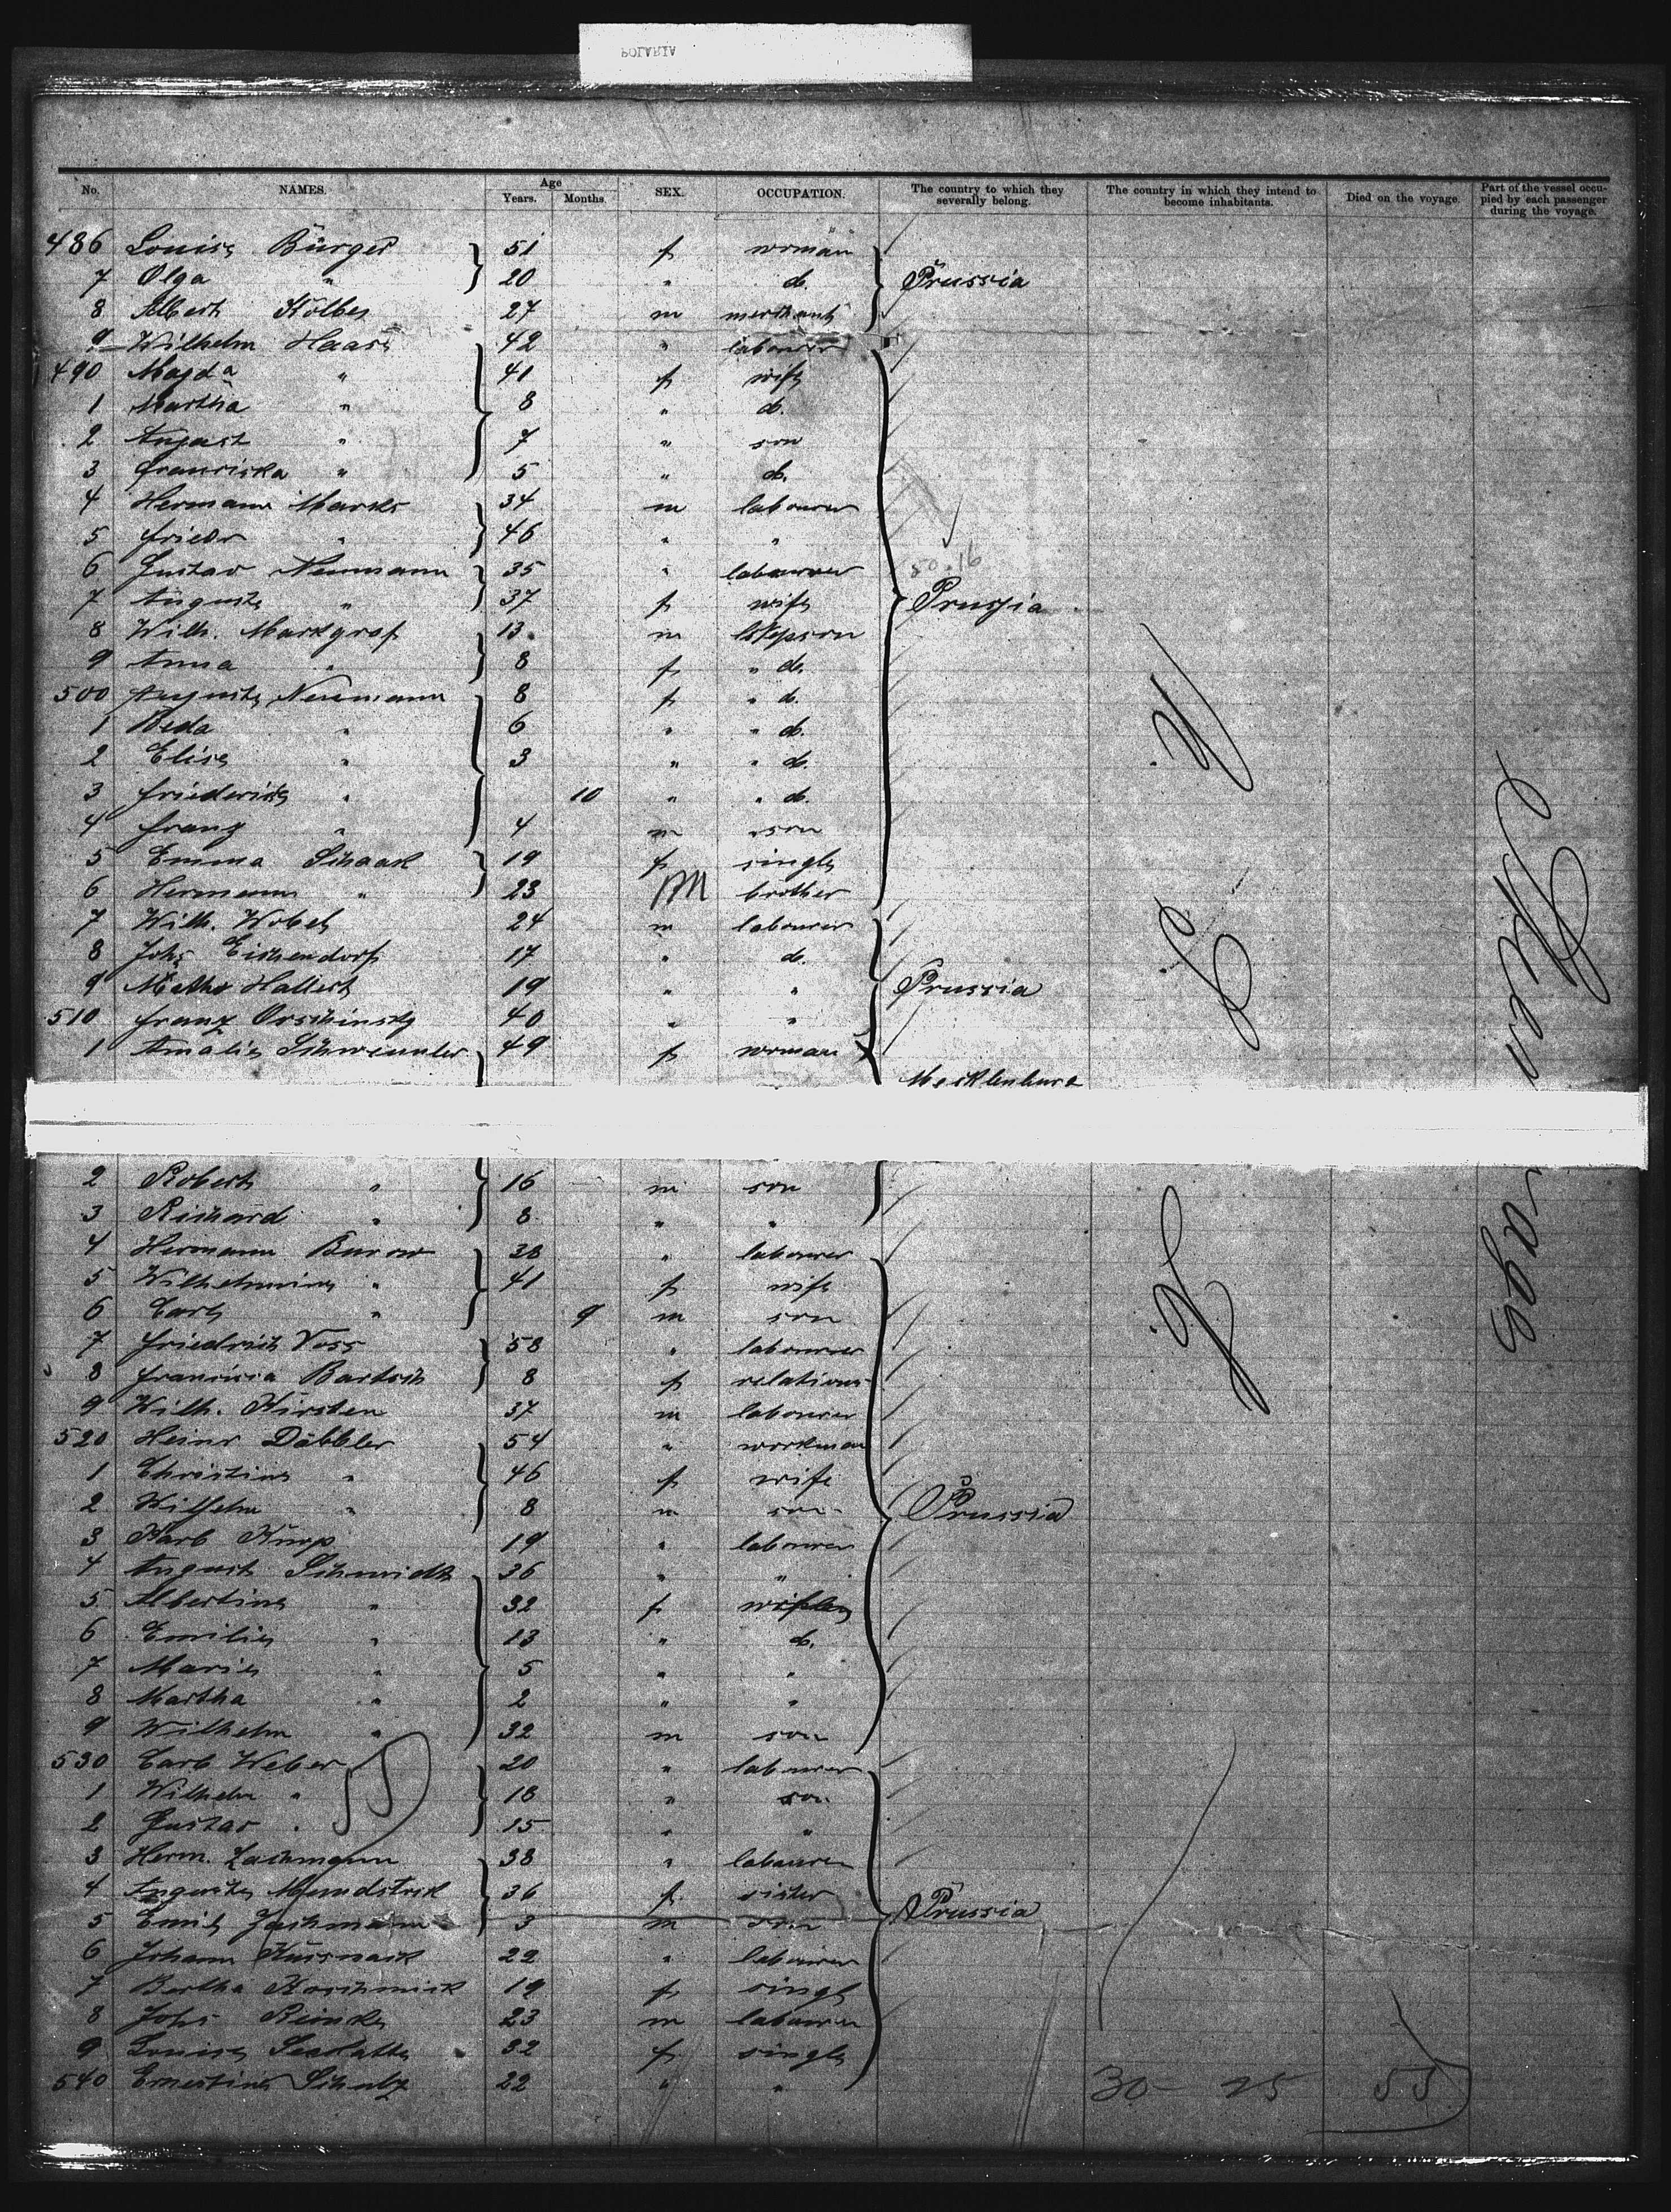 POLARIA
No. NAMES. Age Years. Months SEX. OCCUPATION. The country to which they severally belong. The country in which they intend to become inhabitants. Died on the voyage. Part of the vessel occupied by each passenger during the voyage.
486 Louise Bürger 51 f woman
7 Olga " 20 " do. Prussia
8 Albert Kölbes 27 m merchant
9 Wilhelm Haase 42 " labourer
490 Magda " 41 f wife
1 Martha " 8 " do.
2 August " 7 " son
3 Franciska " 5 " do.
4 Hermann Marks 34 m labourer
5 Friedr " 46 " "
6 Gustav Neumann 35 " labourer
7 Auguste " 37 f wife Prussia
8 Wilh. Markgraf 13 m stepson
9 Anna " 8 f " do.
500 Auguste Neumann 8 f " do.
1 Beda " 6 " " do.
2 Elise " 3 " " do.
3 Friederike " 10 " " do.
4 Franz " 4 m " son
5 Emma Schaak 19 f single
6 Hermann " 23 M brother
7 Wilh. Wobel 24 m labourer
8 Johs Eichendorf 17 " do.
9 Hallert 19 " " Prussia
510 Franz Orschinsky 40 " "
1 Amalie 49 f woman
Mecklenburg
2 Robert " 16 m son
3 Richard " 8 " "
4 Hermann Burow 38 " labourer
5 Wilhelmine " 41 f wife
6 Carl " 9 m son
7 Friedrich Voss 58 " labourer
8 Bartsch 8 f relations
9 Wilh. Kirsten 37 m labourer
520 Heinr Däbbler 54 " workman
1 Christine " 46 f wife
2 Wilhelm " 8 m son Prussia
3 Karl 19 " labourer
4 August Schmidt 36 " "
5 Albertine " 32 f
6 Emilie " 13 " do.
7 Marie " 5 " "
8 Martha " 2 " "
9 Wilhelm " 32 m son
530 Carl Weber 20 " labourer
1 Wilhelm " 18 " son
2 Gustav " 15 " "
3 Herm. Zachmann 38 " labourer
4 Auguste 36 f sister
5 Emil Zachmann 3 m son Prussia
6 Johann 22 " labourer
7 Bertha 19 f single
8 Johs Reincke 23 m labourer
9 Louise 32 f single
540 Ernestine Schulz 22 " "
30 25 55